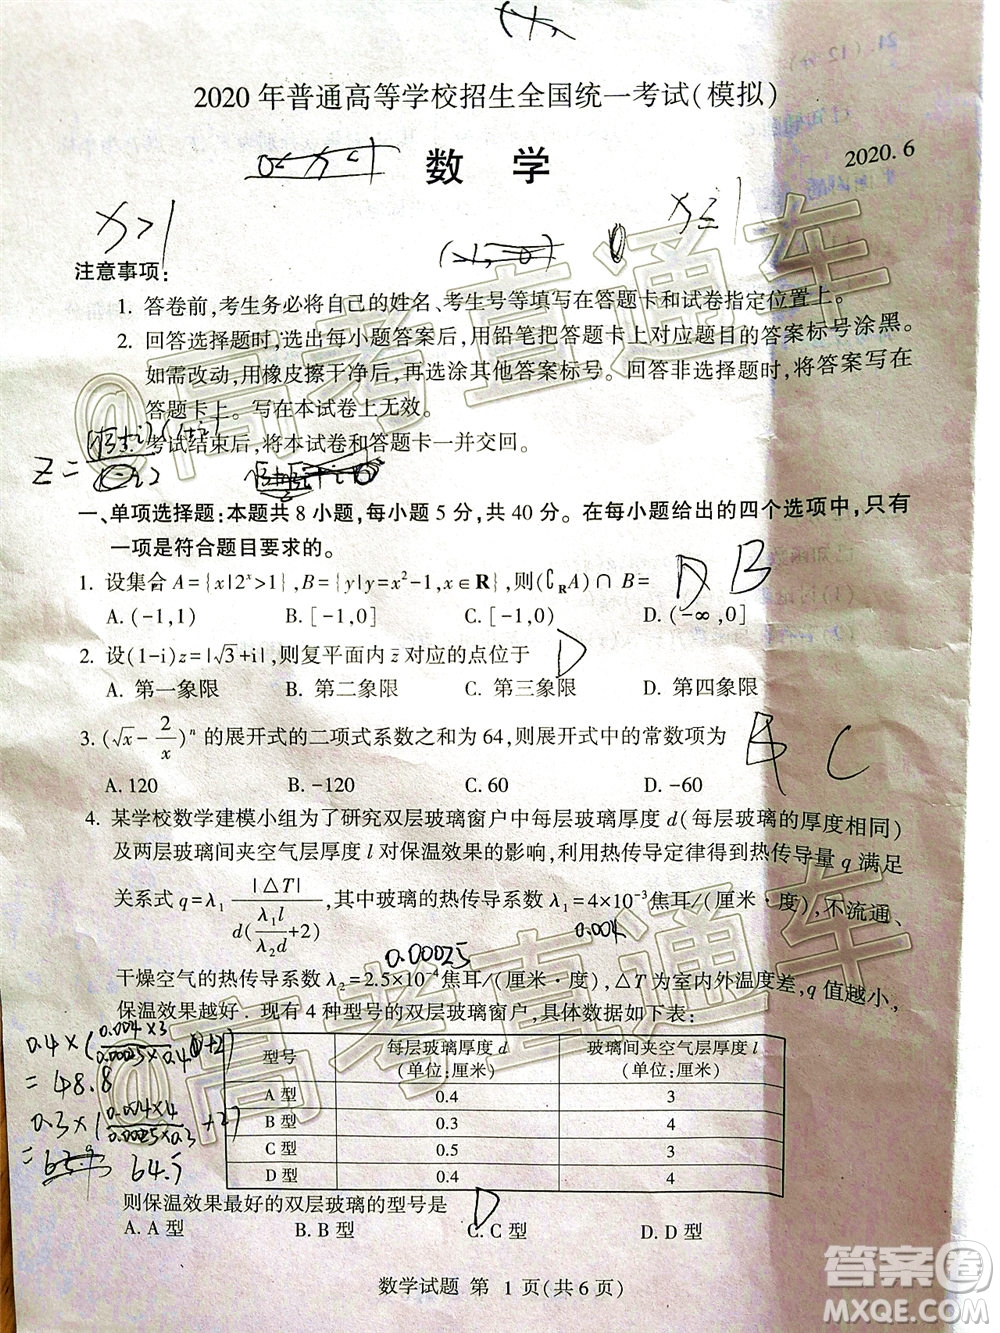 2020年普通高等学校招生全国统一考试(模拟)
数 学
2020.6
x>1
注意事项:
1. 答卷前,考生务必将自己的姓名、考生号等填写在答题卡和试卷指定位置上。
2. 回答选择题时,选出每小题答案后,用铅笔把答题卡上对应题目的答案标号涂黑。
如需改动,用橡皮擦干净后,再选涂其他答案标号。回答非选择题时,将答案写在
答题卡上。写在本试卷上无效。
考试结束后,将本试卷和答题卡一并交回。
一、单项选择题:本题共8小题,每小题5分,共40分。在每小题给出的四个选项中,只有
一项是符合题目要求的。
1. 设集合A={x|2^x>1},B={y|y=x²-1,x∈R},则(∁_R A)∩B= B
A. (-1,1) B. [-1,0] C. [-1,0) D. (-∞,0]
2. 设(1-i)z=|√3+i|,则复平面内z̄对应的点位于 D
A. 第一象限 B. 第二象限 C. 第三象限 D. 第四象限
3. (√x-2/x)^n 的展开式的二项式系数之和为64,则展开式中的常数项为 C
A. 120 B. -120 C. 60 D. -60
4. 某学校数学建模小组为了研究双层玻璃窗户中每层玻璃厚度d(每层玻璃的厚度相同)
及两层玻璃间夹空气层厚度l对保温效果的影响,利用热传导定律得到热传导量q满足
关系式q=λ₁ |△T| / (d(λ₁l/λ₂d+2)),其中玻璃的热传导系数λ₁=4×10⁻³焦耳/(厘米·度),不流通、
0.00025 0.004
干燥空气的热传导系数λ₂=2.5×10⁻⁴焦耳/(厘米·度),△T为室内外温度差,q值越小,
保温效果越好.现有4种型号的双层玻璃窗户,具体数据如下表:
型号 每层玻璃厚度d (单位:厘米) 玻璃间夹空气层厚度l (单位:厘米)
A型 0.4 3
B型 0.3 4
C型 0.5 3
D型 0.4 4
0.4×(0.004×3/0.00025×0.4+2)
=48.8
0.3×(0.004×4/0.00025×0.3+2)
= 64.5
则保温效果最好的双层玻璃的型号是 D
A. A型 B. B型 C. C型 D. D型
数学试题 第 1 页(共6页)
@高考直通车
@高考直通车
答案圈
MXQE.COM